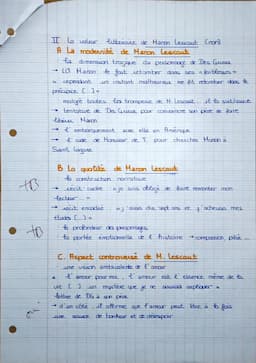 II La valeur littéraire de Manon Lescaut (non)
A La modernité de Manon Lescaut
la dimension tragique du personnage de Des Grieux
→ Manon le fait retomber dans ses « faiblesses »
« cependant un instant malheureux me fit retomber dans le
précipice (...) »
malgré toutes les tromperies de M Lescaut, il la
→ tentative de Des Grieux pour convaincre son père de
Manon
→ l'embarquement avec elle en Amérique
→ l'aide de Monsieur de T. pour chercher Manon à
Saint Lazare
B La qualité de Manon Lescaut
la construction narrative
→ récit cadre « je suis obligé de faire remonter mon
lecteur »
→ récit encadré « j'avais dix sept ans et j'achevais mes
études (...) »
la profondeur des personnages
la portée émotionnelle de l'histoire → compassion, pitié
TB
TB
C. Aspect controversé de M. Lescaut
une vision ambivalente de l'amour
« l'amour pour moi, l'amour est l'essence même de la
vie (...) un mystère que je ne saurais expliquer »
lettre de DG à son père
→ d'un côté il affirme que l'amour peut être à la fois
une source de bonheur et de désespoir